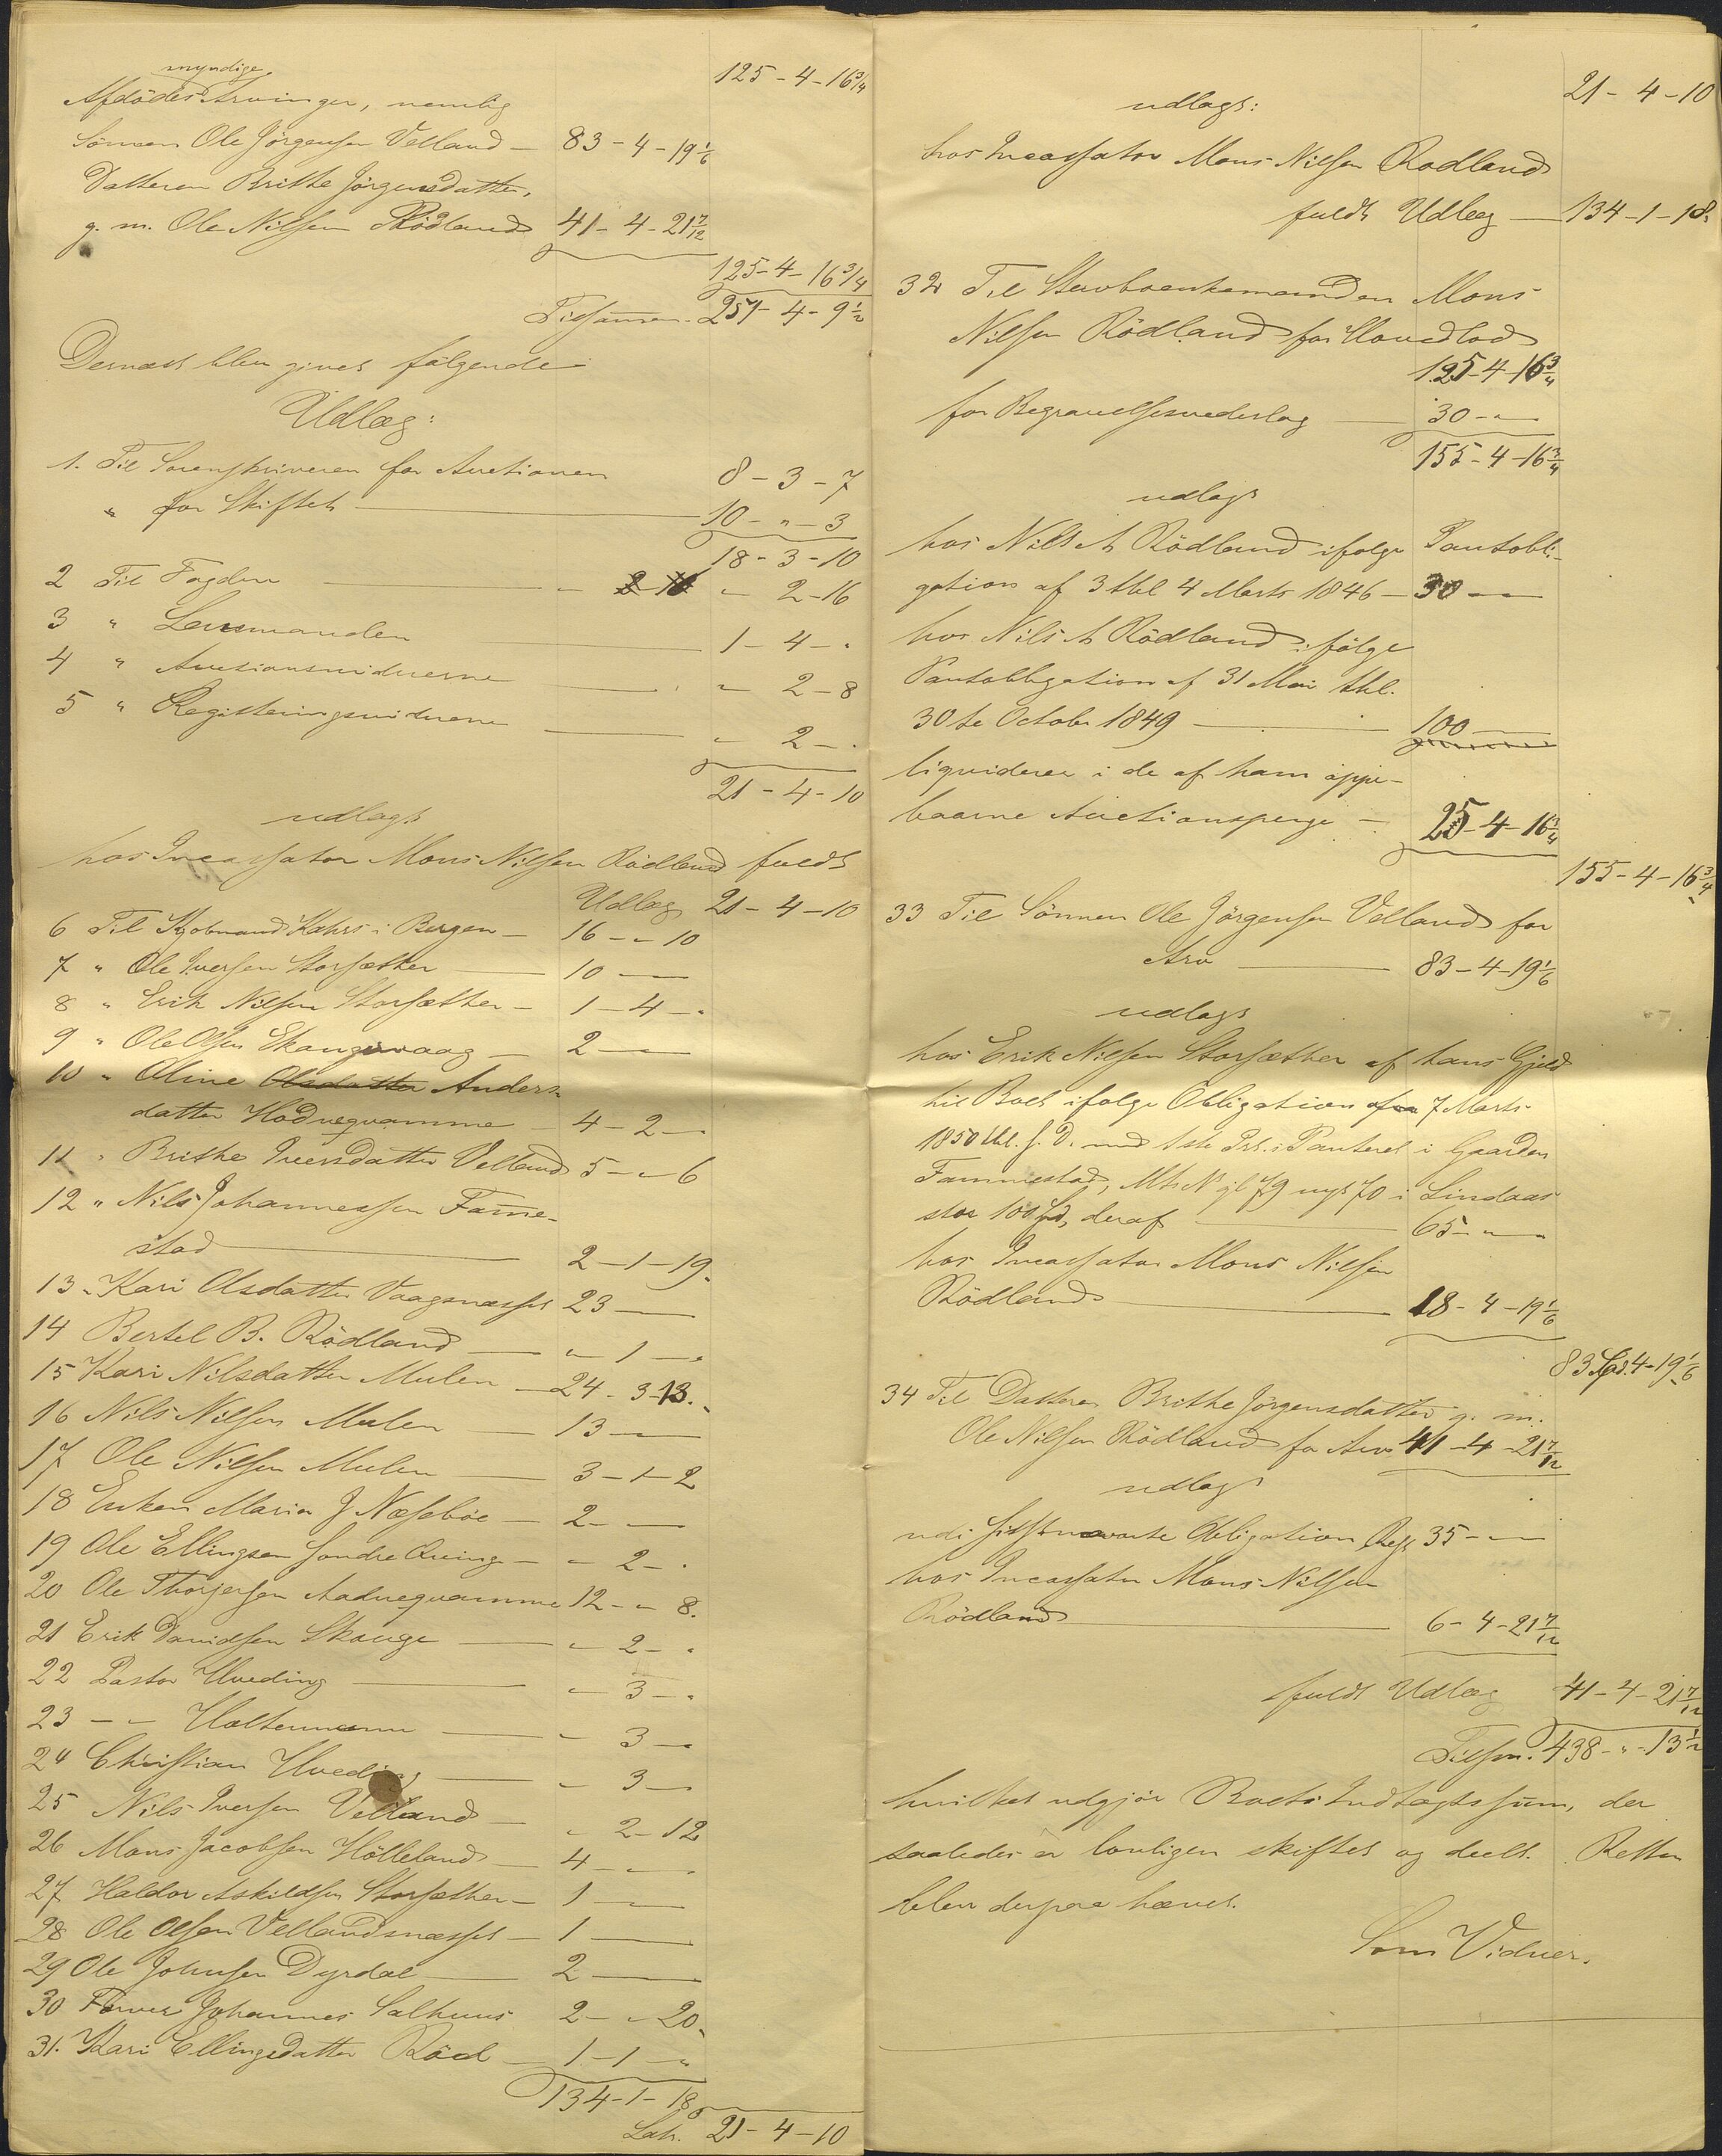 125 - 4 - 16 3/4
myndige
Afdödes Arvinger, nemlig
Sönnen Ole Jörgensen Velland — 83 - 4 - 19 1/6
Datteren Brithe Jörgensdatter,
g. m. Ole Nilsen Rödland 41 - 4 - 21 7/12
125 - 4 - 16 3/4
Tilsammen 251 - 4 - 9 1/2
Dernæst blev givet følgende
Udlæg:
1. Til Sorenskriveren for Auctionen 8 - 3 - 7
" for Skiftet — 10 - " - 3
18 - 3 - 10
2 Til Fogden — " 2 - 16
3 " Lensmanden — 1 - 4 - "
4 " Auctionsvidnerne — " 2 - 8
5 " Registeringsvidnerne — " 2 - "
21 - 4 - 10
udlagt
hos Incassator Mons Nilsen Rödland fuldt
Udlæg 21 - 4 - 10
6 Til Kjøbmand Kahrs i Bergen — 16 - " 10
7 " Ole Iversen Storsæther — 10 —
8 " Erik Nilsen Storsæther — 1 - 4 - "
9 " Ole Olsen Skangevaag — 2 —
10 " Oline Olsdatter Anders
datter Hodneqvamme — 4 - 2 - "
11 " Brithe Iversdatter Velland 5 - " 6
12 " Nils Johannessen Fam̅e-
stad — 2 - 1 - 19
13 " Kari Olsdatter Vaagsnæsset 23 —
14 Bertel B. Rödland — " 1 - "
15 Kari Nilsdatter Mulen — 24 - 3 - 13
16 Nils Nilsen Mulen — 13 —
17 Ole Nilsen Mulen — 3 - 1 - 2
18 Enken Maria J Næsebøe — 2 - —
19 Ole Ellingsen Søndre Qvinge — " 2 - "
20 Ole Thorjersen Aadneqvamme 12 - " 8
21 Erik Davidsen Skouge — " 2 - "
22 Pastor Hveding — " 3 - "
23 - " Holtermann — " 3 —
24 Christian Hveding — " 3 —
25 Nils Iversen Velland — " 2 - 12
26 Mons Jacobsen Hölleland — 4 - " "
27 Haldor Askildsen Storsæther — 1 - "
28 Ole Olsen Vellandsnæsset — 1 —
29 Ole Johnsen Dyrdal — 2 —
30 Farver Johannes Salhuus 2 - " 20
31. Kari Ellingsdatter Röd — 1 - 1 - "
134 - 1 - 18
Lat. 21 - 4 - 10
21 - 4 - 10
udlagt:
hos Incassator Mons Nilsen Rødland
fuldt Udlæg — 134 - 1 - 18
32 Til Stervboenkemanden Mons
Nilsen Rödland for Hovedlod
125 - 4 - 16 3/4
for Begravelsesvederlag — 30 - "
155 - 4 - 16 3/4
udlagt
hos Nils A Rödland ifølge Pantobli-
gation af 3 thl 4 Marts 1846 — 30 —
hos Nils A Rödland ifölge
Pantobligation af 31 Mai thl.
30te October 1849 — 100 —
liquiderer i de af ham oppe-
baarne Auctionspenge — 25 - 4 - 16 3/4
155 - 4 - 16 3/4
33 Til Sönnen Ole Jörgensen Velland for
Arv — 83 - 4 - 19 1/6
udlagt
hos Erik Nilsen Storsæther af hans Gjeld
til Boet ifølge Obligation 7 Marts
1850 thl. s. D. med 1ste Prt. i Panteret i Gaarden
Fammestad, Mts N gl 79 nyt 70 i Lindaas
stor 100 Spd, deraf — 65 - " -
hos Incassator Mons Nilsen
Rödland — 18 - 4 - 19 1/6
83 Spd. 4 - 19 1/6
34 Til Datteren Brithe Jörgensdatter g. m.
Ole Nilsen Rödland for Arv 41 - 4 - 21 7/12
udlagt
udi sidstnævnte Obligation Rest 35 - —
hos Incassator Mons Nilsen
Rödland — 6 - 4 - 21 7/12
fuldt Udlæg 41 - 4 - 21 7/12
Tilsm. 438 - " - 13 1/2
hvilket udgjør Boets Indtægtssum, der
saaledes er lovligen skiftet og deelt. Retten
blev derpaa hævet.
Som Vidner.